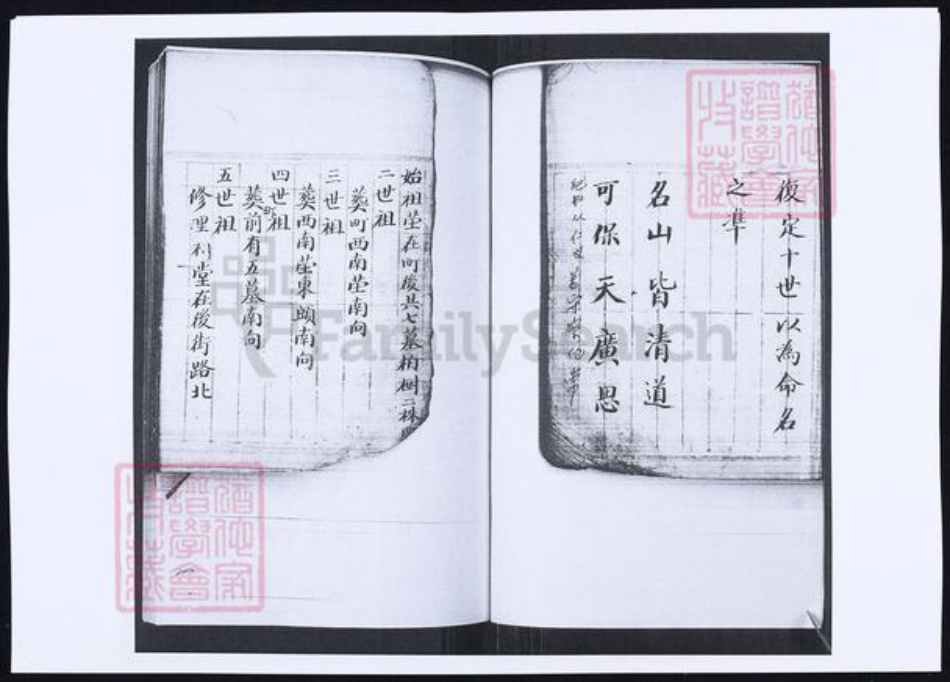 復定十世以為命名
之準
名山皆清道
可保天廣恩
始祖塋在町後共七墓柏樹二株
二世祖
葬町西南塋南向
三世祖
葬西南塋東頭南向
四世祖
葬町前有五墓南向
五世祖
修理 堂在後街路北
FamilySearch
譜學會
收藏
譜學會
收藏